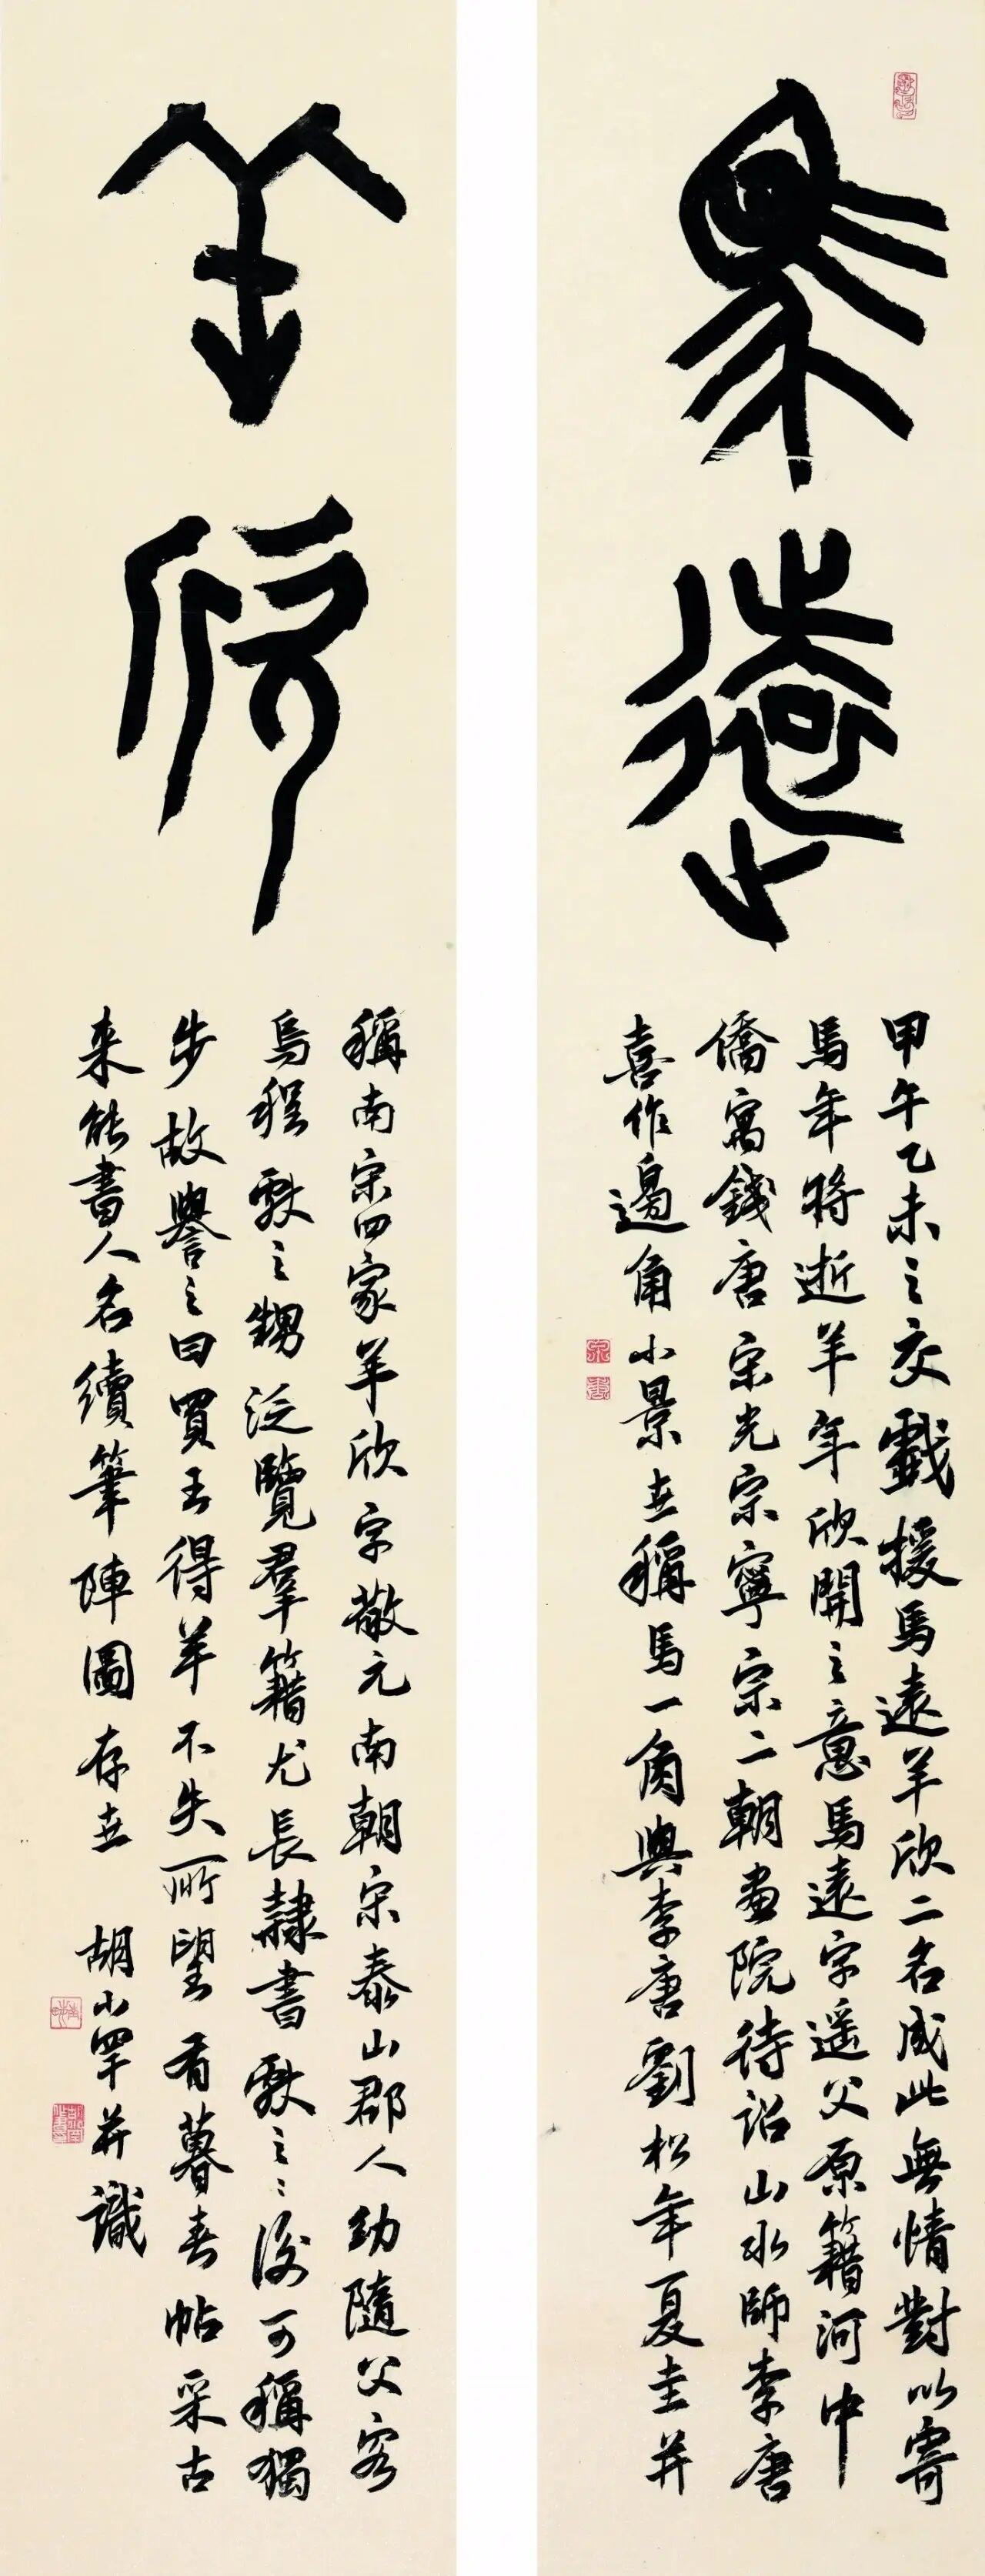 馬遠
甲午乙未之交戲援馬遠羊欣二名成此無情對以寄
馬年將逝羊年欣開之意馬遠字遥父原籍河中
僑寓錢唐宋光宗寧宗二朝畫院待詔山水師李唐
喜作邊角小景世稱馬一角與李唐劉松年夏圭并
羊欣
稱南宋四家羊欣字敬元南朝宋泰山郡人幼隨父客
烏程獻之甥泛覽羣籍尤長隸書獻之之後可稱獨
步故譽之曰買王得羊不失所望有暮春帖采古
来能書人名續筆陣圖存世 胡小罕并識